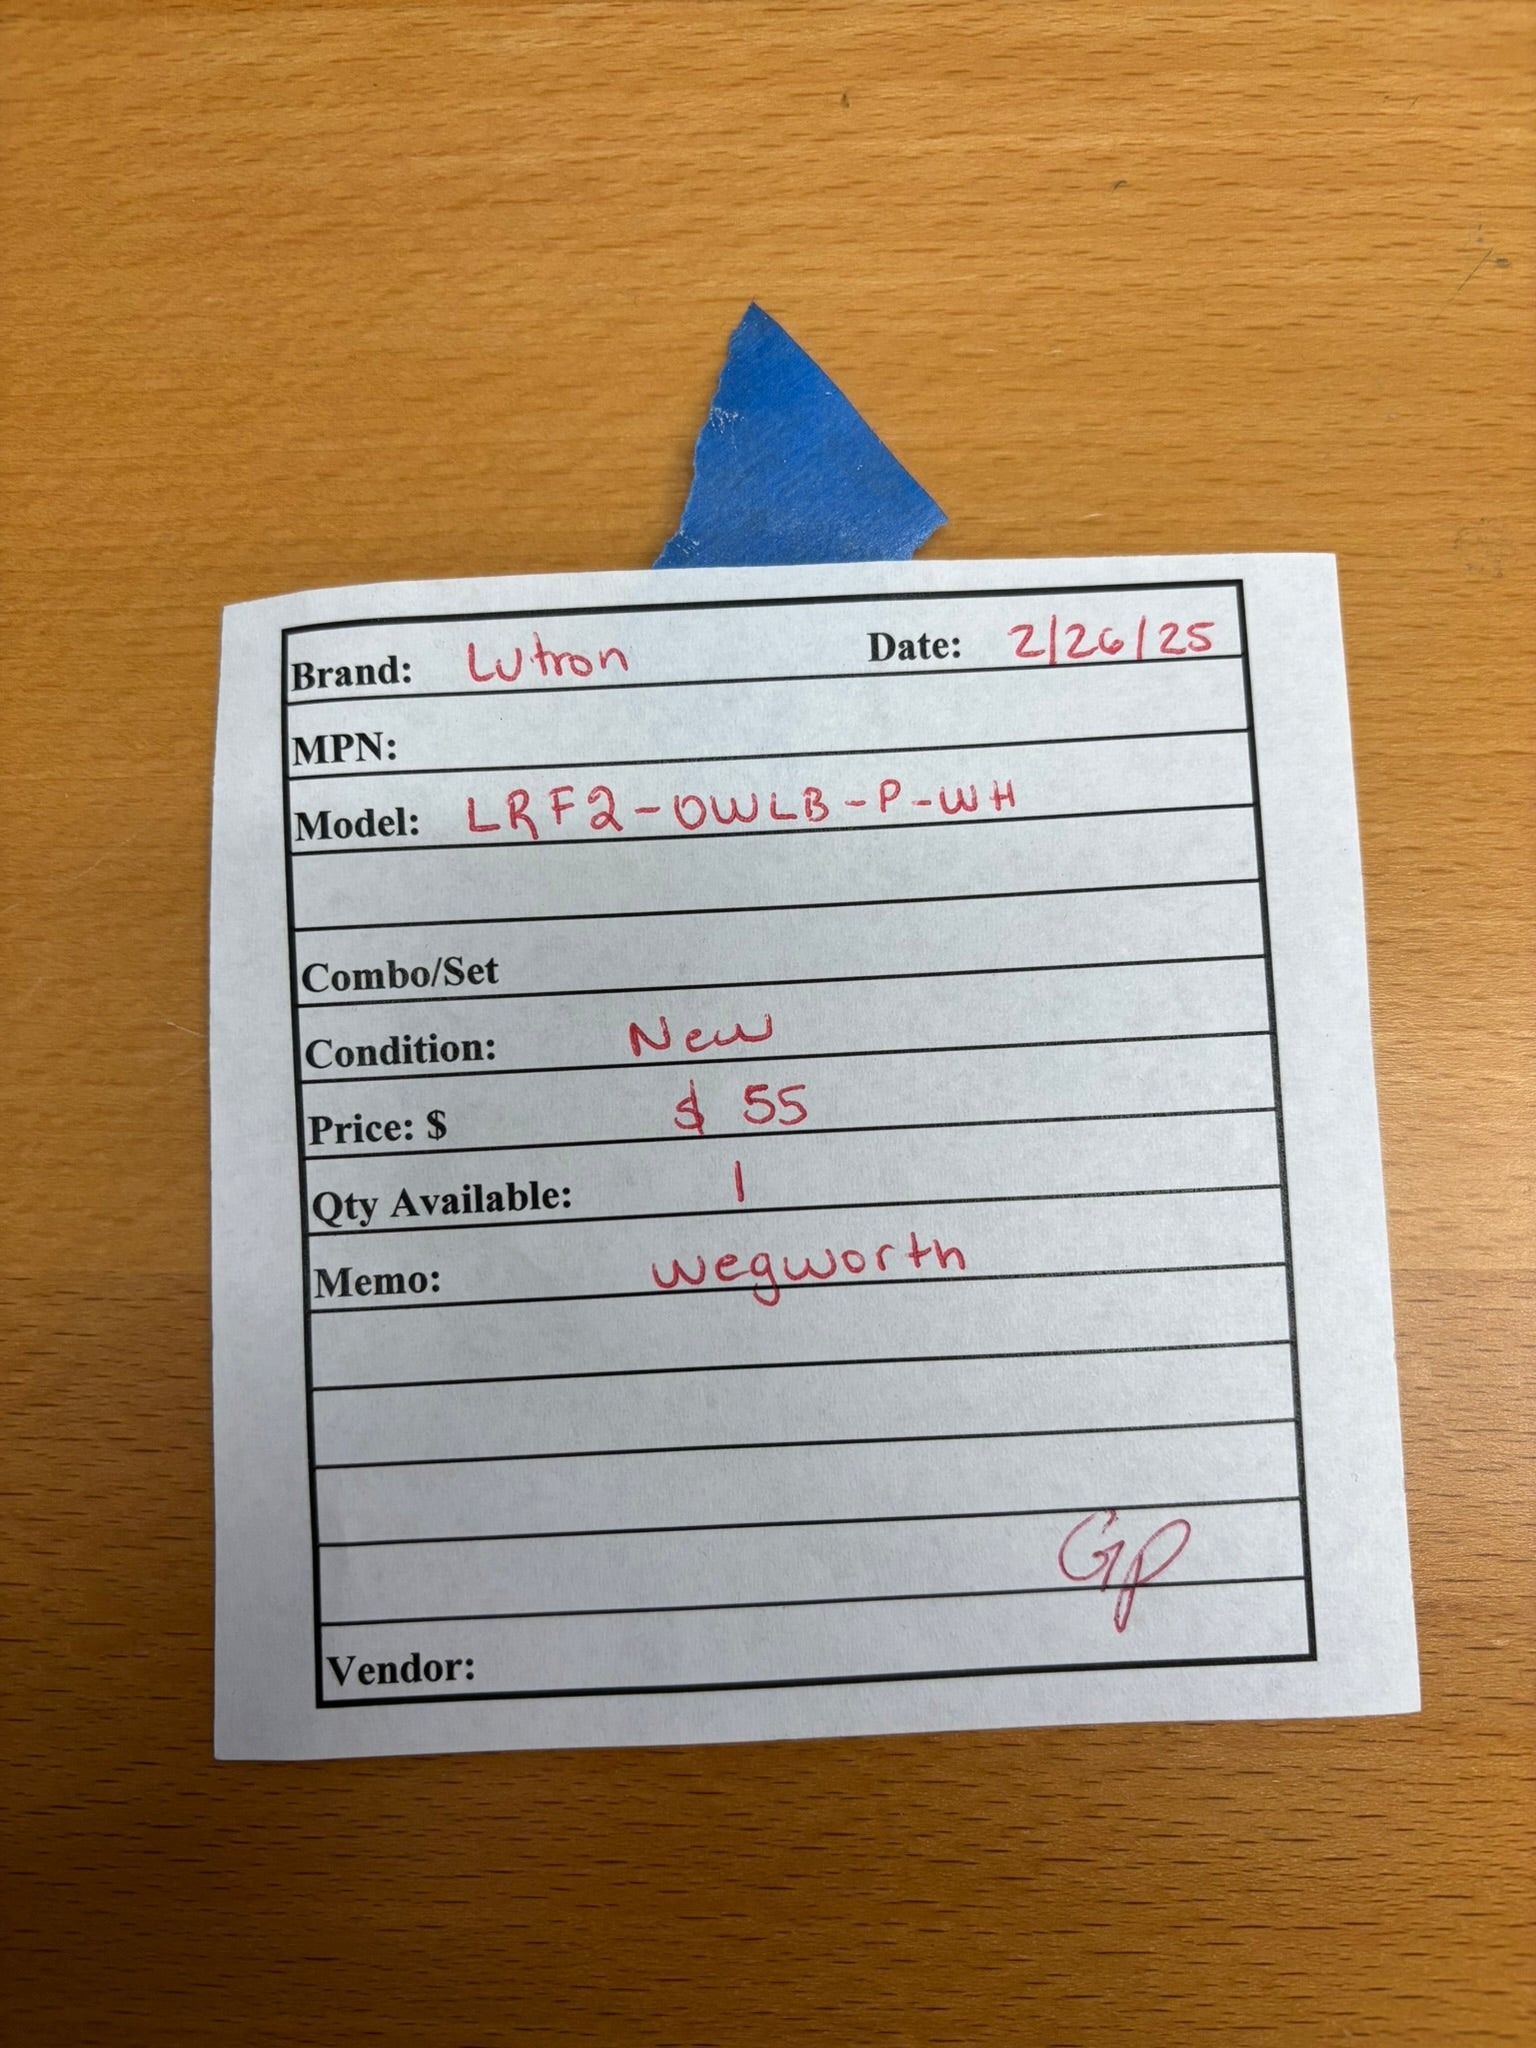 Brand: Lutron Date: 2/26/25
MPN:
Model: LRF2-OWLB-P-WH
Combo/Set
Condition: New
Price: $ $ 55
Qty Available: 1
Memo: wegworth
GP
Vendor: